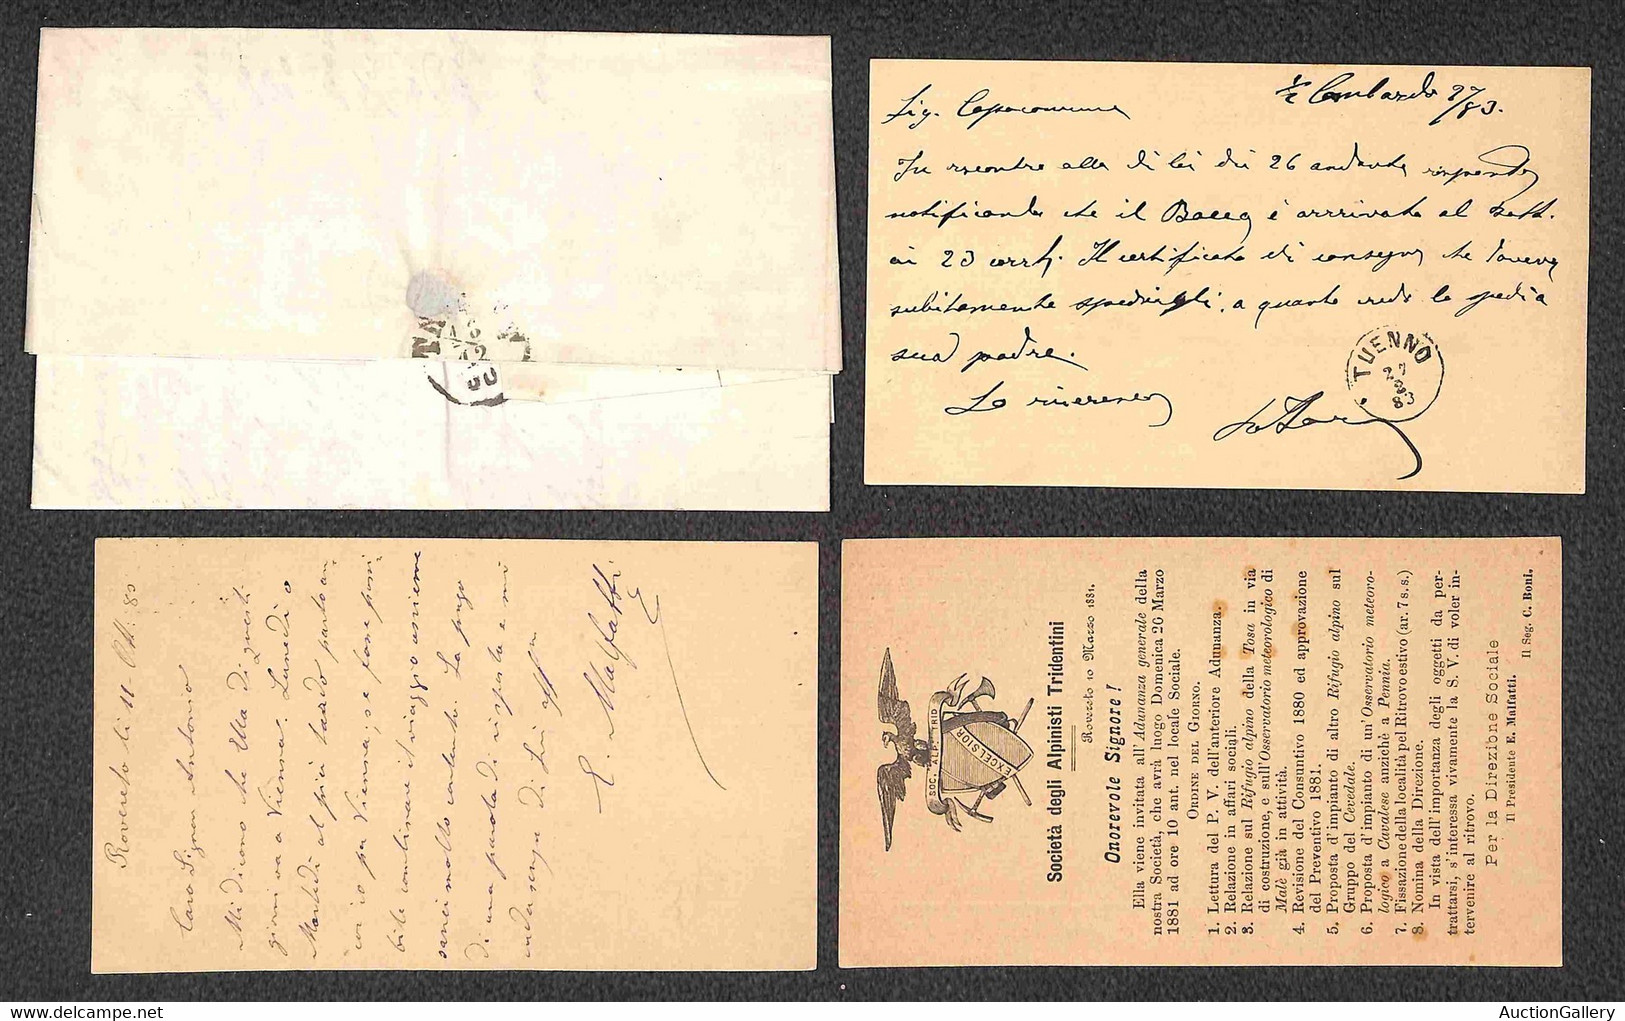 Sig. Capocomune
In riscontro alla di lei dei 26 andante
notificando che il è arrivato al sott.
ai 23 Il certificato di consegna che
subitamente a quanto credo lo
suo padre.
TUENNO
27
2
83
Rovereto li 11 - Ott: 80
Caro Signor Antonio
Mi dicono che Ella di questi
giorni va a Vienna. Lunedì o
Martedì al più tardo parto an
cor io per Vienna; se fosse possi
bile combinare il viaggio assieme
sarei molto contento. La prego
di una parola di risposta e mi
di Lei
E. Malfatti
SOC. ALP. TRID.
EXCELSIOR
Società degli Alpinisti Tridentini
Rovereto 10 Marzo 1881.
Onorevole Signore!
Ella viene invitata all'Adunanza generale della
nostra Società, che avrà luogo Domenica 20 Marzo
1881 ad ore 10 ant. nel locale Sociale.
ORDINE DEL GIORNO.
1. Lettura del P. V. dell'anteriore Adunanza.
2. Relazione in affari sociali.
3. Relazione sul Rifugio alpino della Tosa in via
di costruzione, e sull'Osservatorio meteorologico di
Malè già in attività.
4. Revisione del Consuntivo 1880 ed approvazione
del Preventivo 1881.
5. Proposta d'impianto di altro Rifugio alpino sul
Gruppo del Cevedale.
6. Proposta d'impianto di un'Osservatorio meteoro-
logico a Cavalese anzichè a Pennia.
7. Fissazione della località pel Ritrovo estivo (ar. 7 s. s.)
8. Nomina della Direzione.
In vista dell'importanza degli oggetti da per-
trattarsi, s'interessa vivamente la S. V. di voler in-
tervenire al ritrovo.
Per la Direzione Sociale
Il Presidente E. Malfatti.
Il Seg. C. Boni.
AuctionGallery